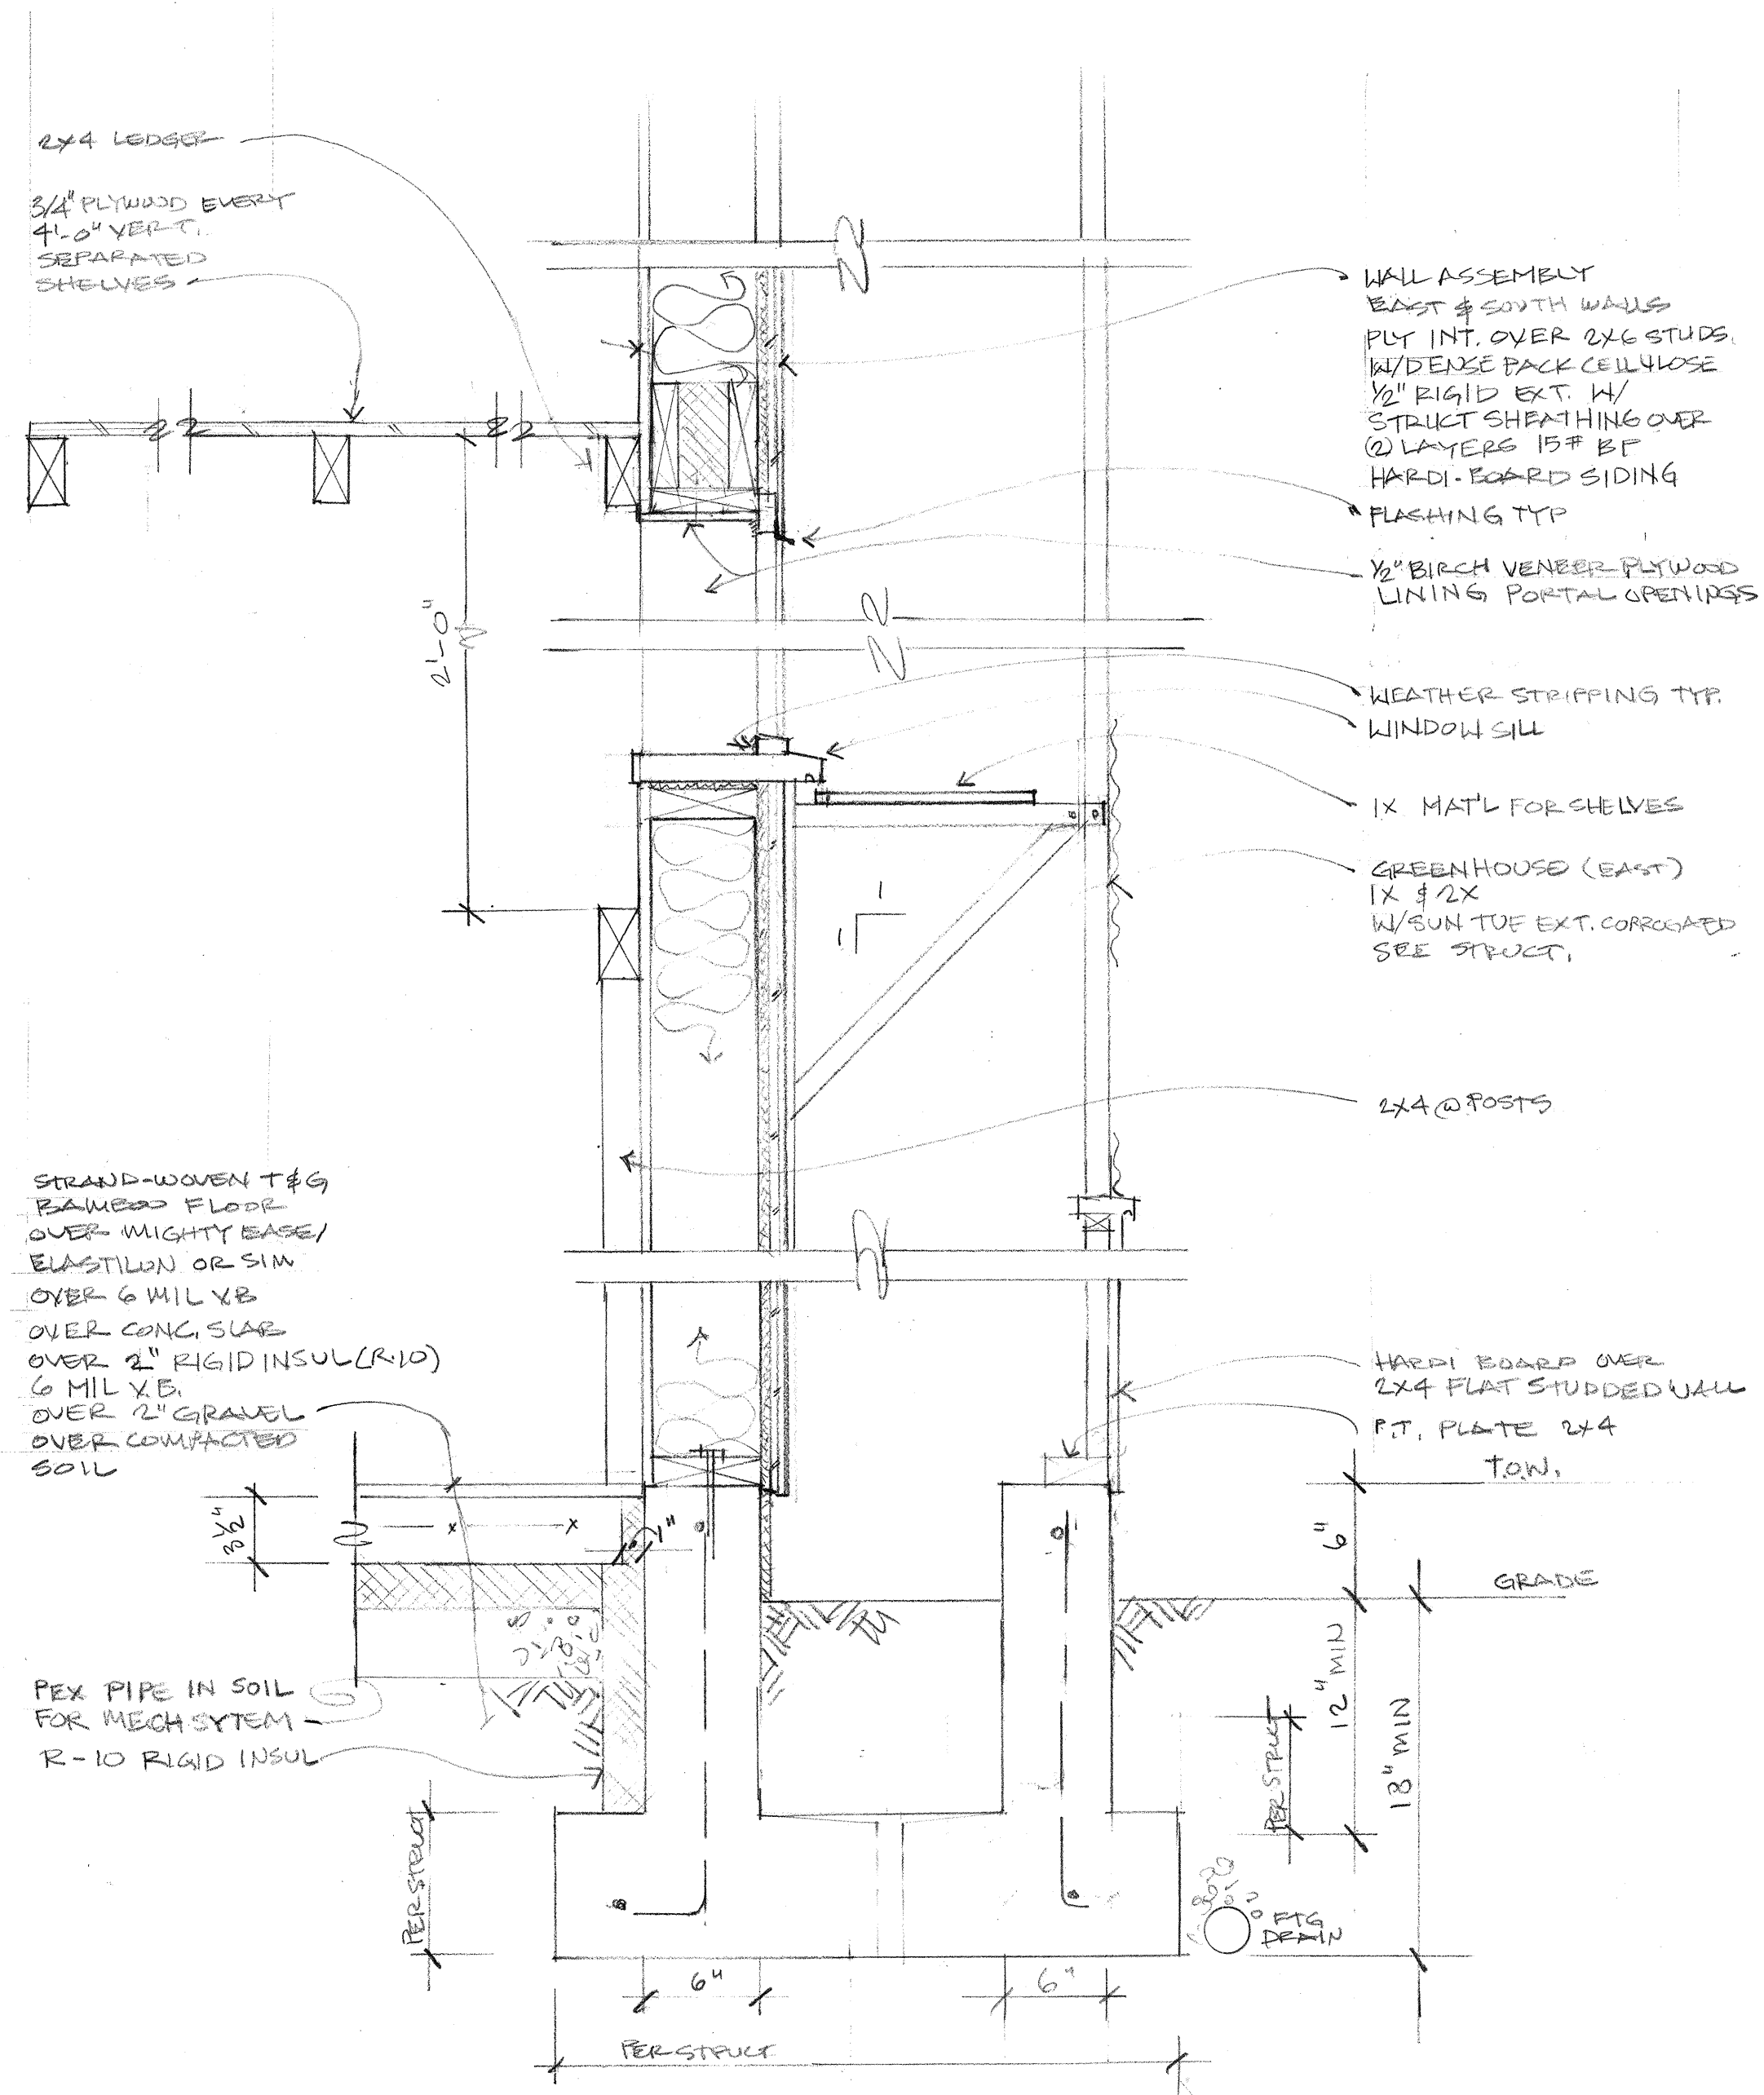 2X4 LEDGER
3/4" PLYWOOD EVERY
4'-0" VERT.
SEPARATED
SHELVES
WALL ASSEMBLY
EAST & SOUTH WALLS
PLY INT. OVER 2X6 STUDS.
W/DENSE PACK CELLULOSE
1/2" RIGID EXT. W/
STRUCT SHEATHING OVER
(2) LAYERS 15# BP
HARDI-BOARD SIDING
FLASHING TYP
1/2" BIRCH VENEER PLYWOOD
LINING PORTAL OPENINGS
2'-0"
WEATHER STRIPPING TYP.
WINDOW SILL
1X MAT'L FOR SHELVES
GREENHOUSE (EAST)
1X & 2X
W/SUN TUF EXT. CORROGATED
SEE STRUCT.
1
1
2X4 @ POSTS
STRAND-WOVEN T&G
BAMBOO FLOOR
OVER MIGHTY EASE/
ELASTILON OR SIM
OVER 6 MIL VB
OVER CONC. SLAB
OVER 2" RIGID INSUL (R-10)
6 MIL V.B.
OVER 2" GRAVEL
OVER COMPACTED
SOIL
HARDI BOARD OVER
2X4 FLAT STUDDED WALL
P.T. PLATE 2X4
T.O.W.
3 1/2"
1"
6"
GRADE
12" MIN
18" MIN
PER STRUCT
PEX PIPE IN SOIL
FOR MECH SYTEM
R-10 RIGID INSUL
PER STRUCT
FTG
DRAIN
6"
6"
PER STRUCT